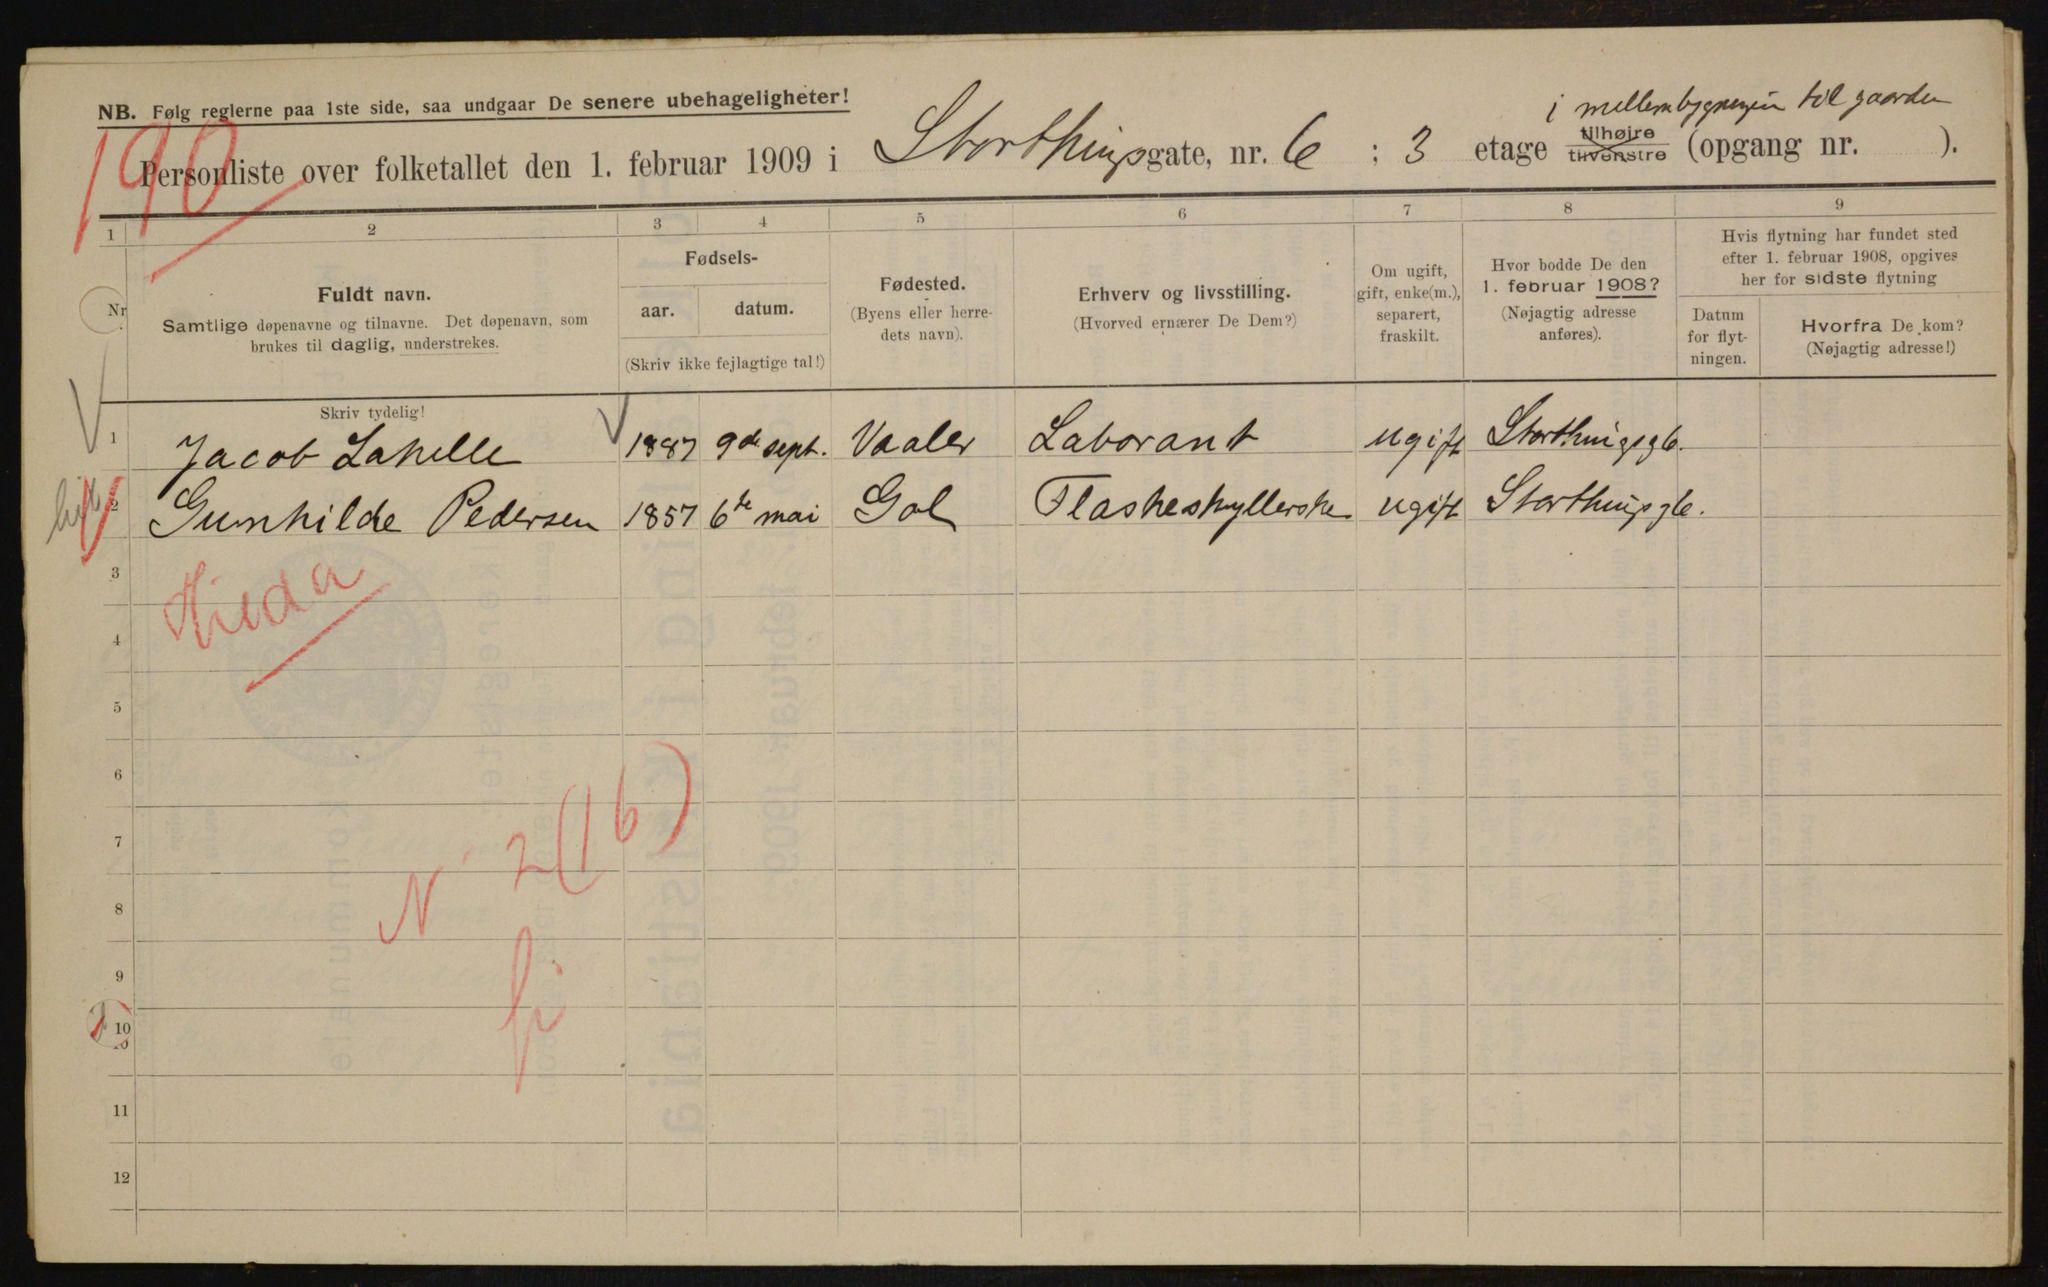 i mellembygningen til gaarden
NB. Følg reglerne paa 1ste side, saa undgaar De senere ubehageligheter!
190
Personliste over folketallet den 1. februar 1909 i Storthingsgate, nr. 6 ; 3 etage tilhøjre tilvenstre (opgang nr. ).
1 2 3 4 5 6 7 8 9
Nr.
Fuldt navn.
Samtlige døpenavne og tilnavne. Det døpenavn, som
brukes til daglig, understrekes.
Fødsels-
aar. datum.
(Skriv ikke fejlagtige tal!)
Fødested.
(Byens eller herre-
dets navn).
Erhverv og livsstilling.
(Hvorved ernærer De Dem?)
Om ugift,
gift, enke(m.),
separert,
fraskilt.
Hvor bodde De den
1. februar 1908?
(Nøjagtig adresse
anføres).
Hvis flytning har fundet sted
efter 1. februar 1908, opgives
her for sidste flytning
Datum
for flyt-
ningen.
Hvorfra De kom?
(Nøjagtig adresse!)
Skriv tydelig!
1 Jacob Lakelle 1887 9de sept. Vaaler Laborant ugift Storthingsg 6.
2 Gunhilde Pedersen 1857 6te mai Gol Flaskeskyllerske ugift Storthingsg 6.
3
4
5
6
7
2(16)
8
N
9
10
11
12